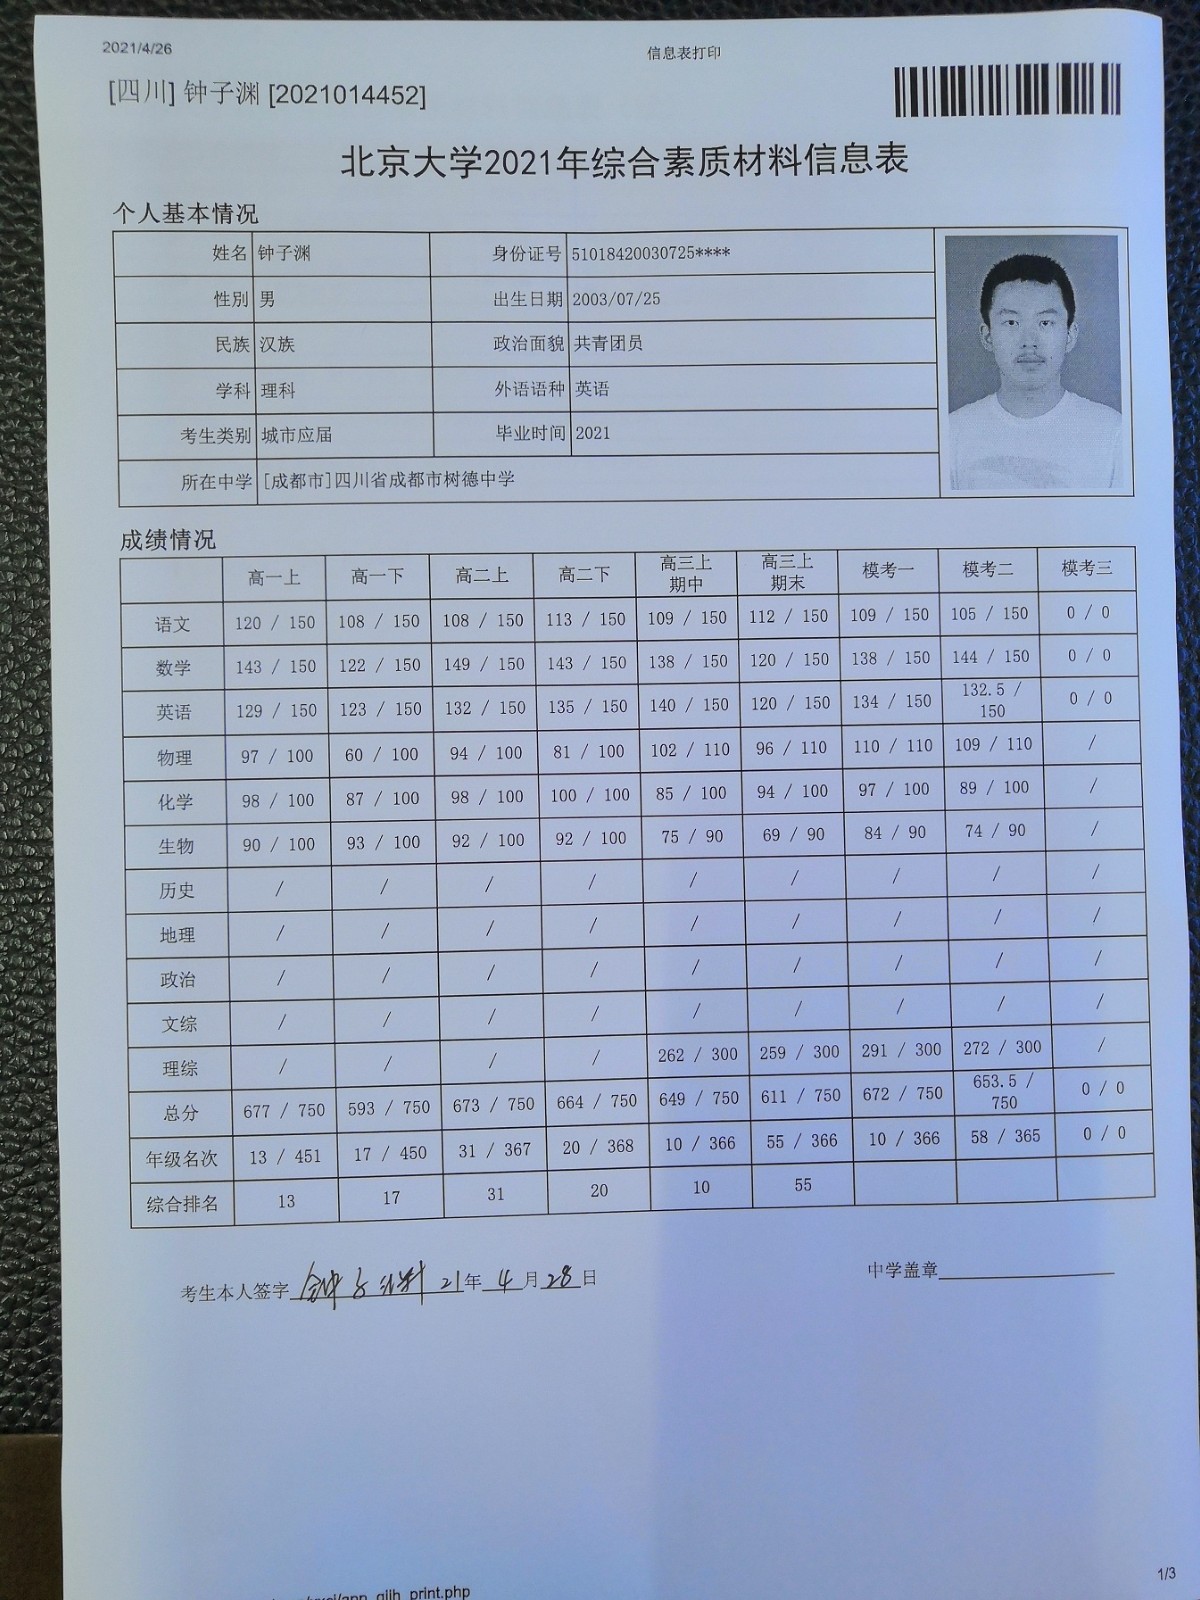 2021/4/26
信息表打印
[四川] 钟子渊 [2021014452]
北京大学2021年综合素质材料信息表
个人基本情况
姓名 钟子渊 身份证号 51018420030725****
性别 男 出生日期 2003/07/25
民族 汉族 政治面貌 共青团员
学科 理科 外语语种 英语
考生类别 城市应届 毕业时间 2021
所在中学 [成都市]四川省成都市树德中学
成绩情况
高一上 高一下 高二上 高二下 高三上期中 高三上期末 模考一 模考二 模考三
语文 120 / 150 108 / 150 108 / 150 113 / 150 109 / 150 112 / 150 109 / 150 105 / 150 0 / 0
数学 143 / 150 122 / 150 149 / 150 143 / 150 138 / 150 120 / 150 138 / 150 144 / 150 0 / 0
英语 129 / 150 123 / 150 132 / 150 135 / 150 140 / 150 120 / 150 134 / 150 132.5 / 150 0 / 0
物理 97 / 100 60 / 100 94 / 100 81 / 100 102 / 110 96 / 110 110 / 110 109 / 110 /
化学 98 / 100 87 / 100 98 / 100 100 / 100 85 / 100 94 / 100 97 / 100 89 / 100 /
生物 90 / 100 93 / 100 92 / 100 92 / 100 75 / 90 69 / 90 84 / 90 74 / 90 /
历史 / / / / / / / / /
地理 / / / / / / / / /
政治 / / / / / / / / /
文综 / / / / / / / / /
理综 / / / / 262 / 300 259 / 300 291 / 300 272 / 300 /
总分 677 / 750 593 / 750 673 / 750 664 / 750 649 / 750 611 / 750 672 / 750 653.5 / 750 0 / 0
年级名次 13 / 451 17 / 450 31 / 367 20 / 368 10 / 366 55 / 366 10 / 366 58 / 365 0 / 0
综合排名 13 17 31 20 10 55
考生本人签字 钟子渊 21年 4月28日 中学盖章
print.php
1/3